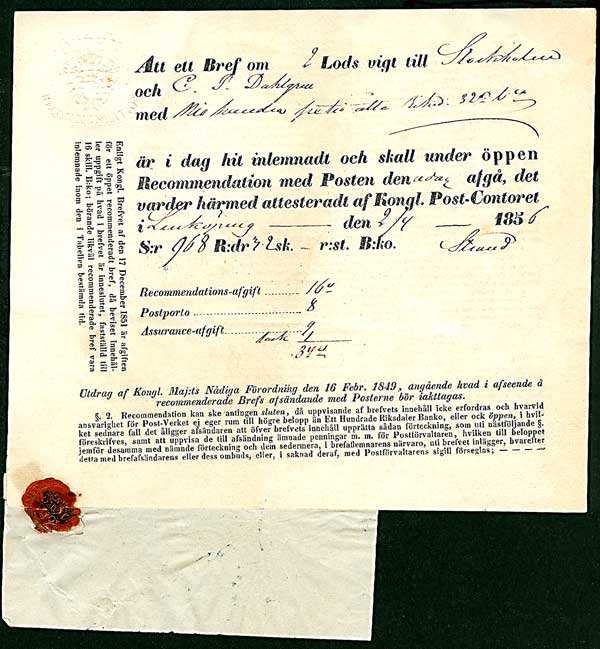 Att ett Bref om 2 Lods vigt till Stockholm
och C. P. Dahlgren
med Niohundra sextio åtta R:d. 32 sk b:co
är i dag hit inlemnadt och skall under öppen
Recommendation med Posten den i dag afgå, det
varder härmed attesteradt af Kongl. Post-Contoret
i Linköping den 2/4 1856
S:r 968 R:dr 32 sk. — r:st. B:ko. Strand
Recommendations-afgift 16
Postporto 8
Assurance-afgift 9
1
34
Enligt Kongl. Brefvet af den 17 December 1851 är afgiften
för ett öppet recommenderadt bref, då beviset innehål-
ler uppgift på hvad i brefvet är inneslutet, fastställd till
16 skill. B:ko; börande likväl recommenderade bref vara
inlemnade inom den i Tabellen bestämda tid.
Utdrag af Kongl. Maj:ts Nådiga Förordning den 16 Febr. 1849, angående hvad i afseende å
recommenderade Brefs afsändande med Posterne bör iakttagas.
§. 2. Recommendation kan ske antingen sluten, då uppvisande af brefvets innehåll icke erfordras och hvarvid
ansvarighet för Post-Verket ej eger rum till högre belopp än Ett Hundrade Riksdaler Banko, eller ock öppen, i hvil-
ket sednare fall det åligger afsändaren att öfver brefvets innehåll upprätta sådan förteckning, som uti nästföljande §.
föreskrifves, samt att uppvisa de till afsändning ämnade penningar m. m. för Postförvaltaren, hvilken till beloppet
jemför desamma med nämnde förteckning och dem sedermera, i brefaflemnarens närvaro, uti brefvet inlägger, hvarefter
detta med brefafsändarens eller dess ombuds, eller, i saknad deraf, med Postförvaltarens sigill förseglas; — — — —